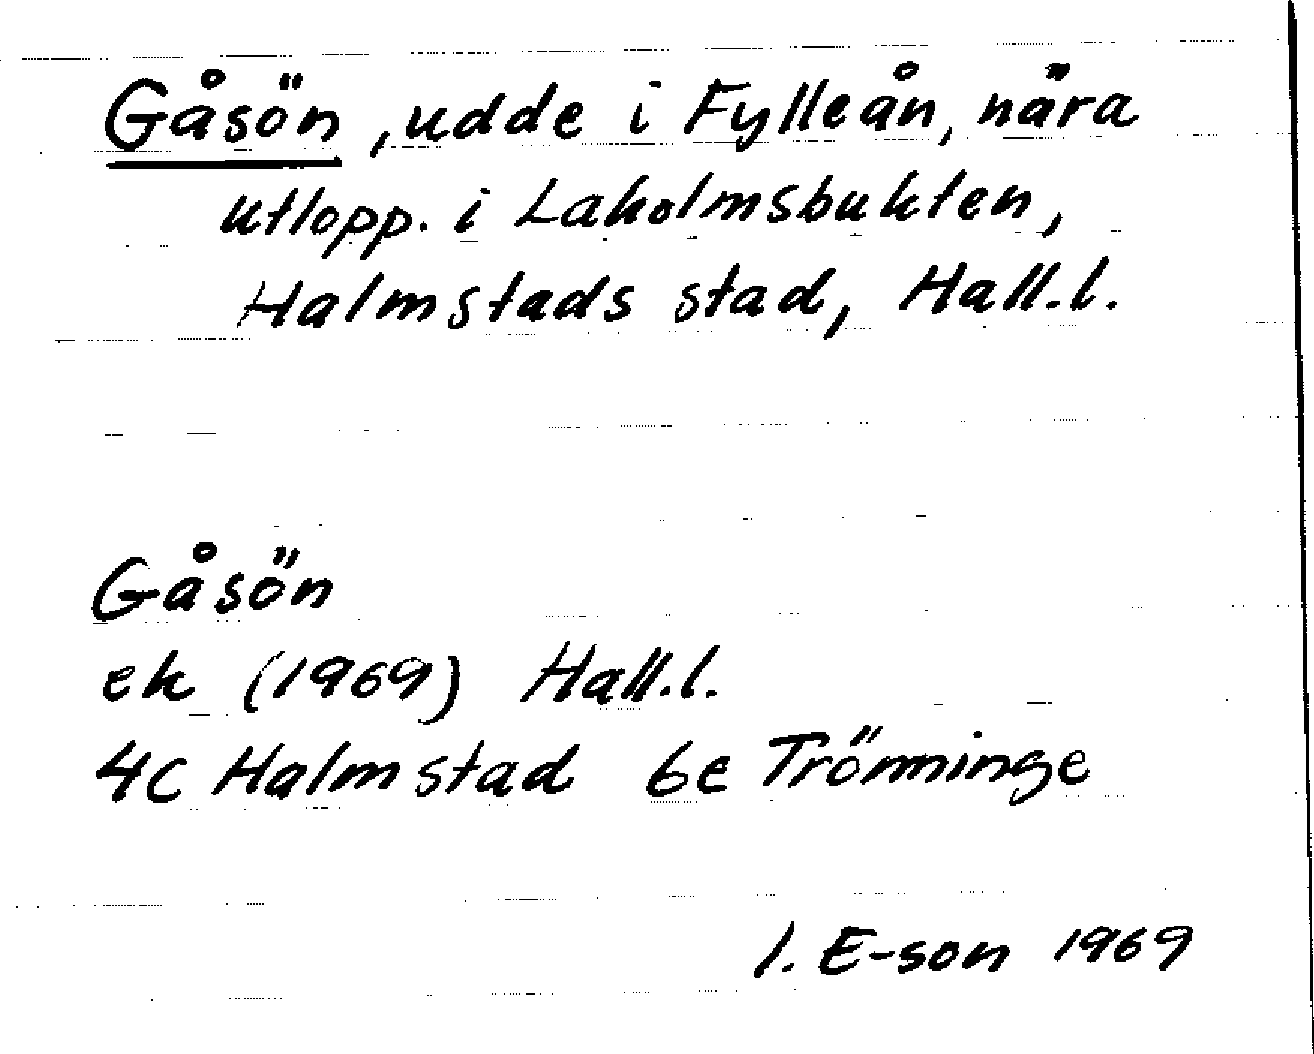 Gåsön, udde i Fylleån, nära
utlopp. i Laholmsbukten,
Halmstads stad, Hall.l.
Gåsön
ek (1969) Hall.l.
4C Halmstad 6e Trönninge
I. E-son 1969